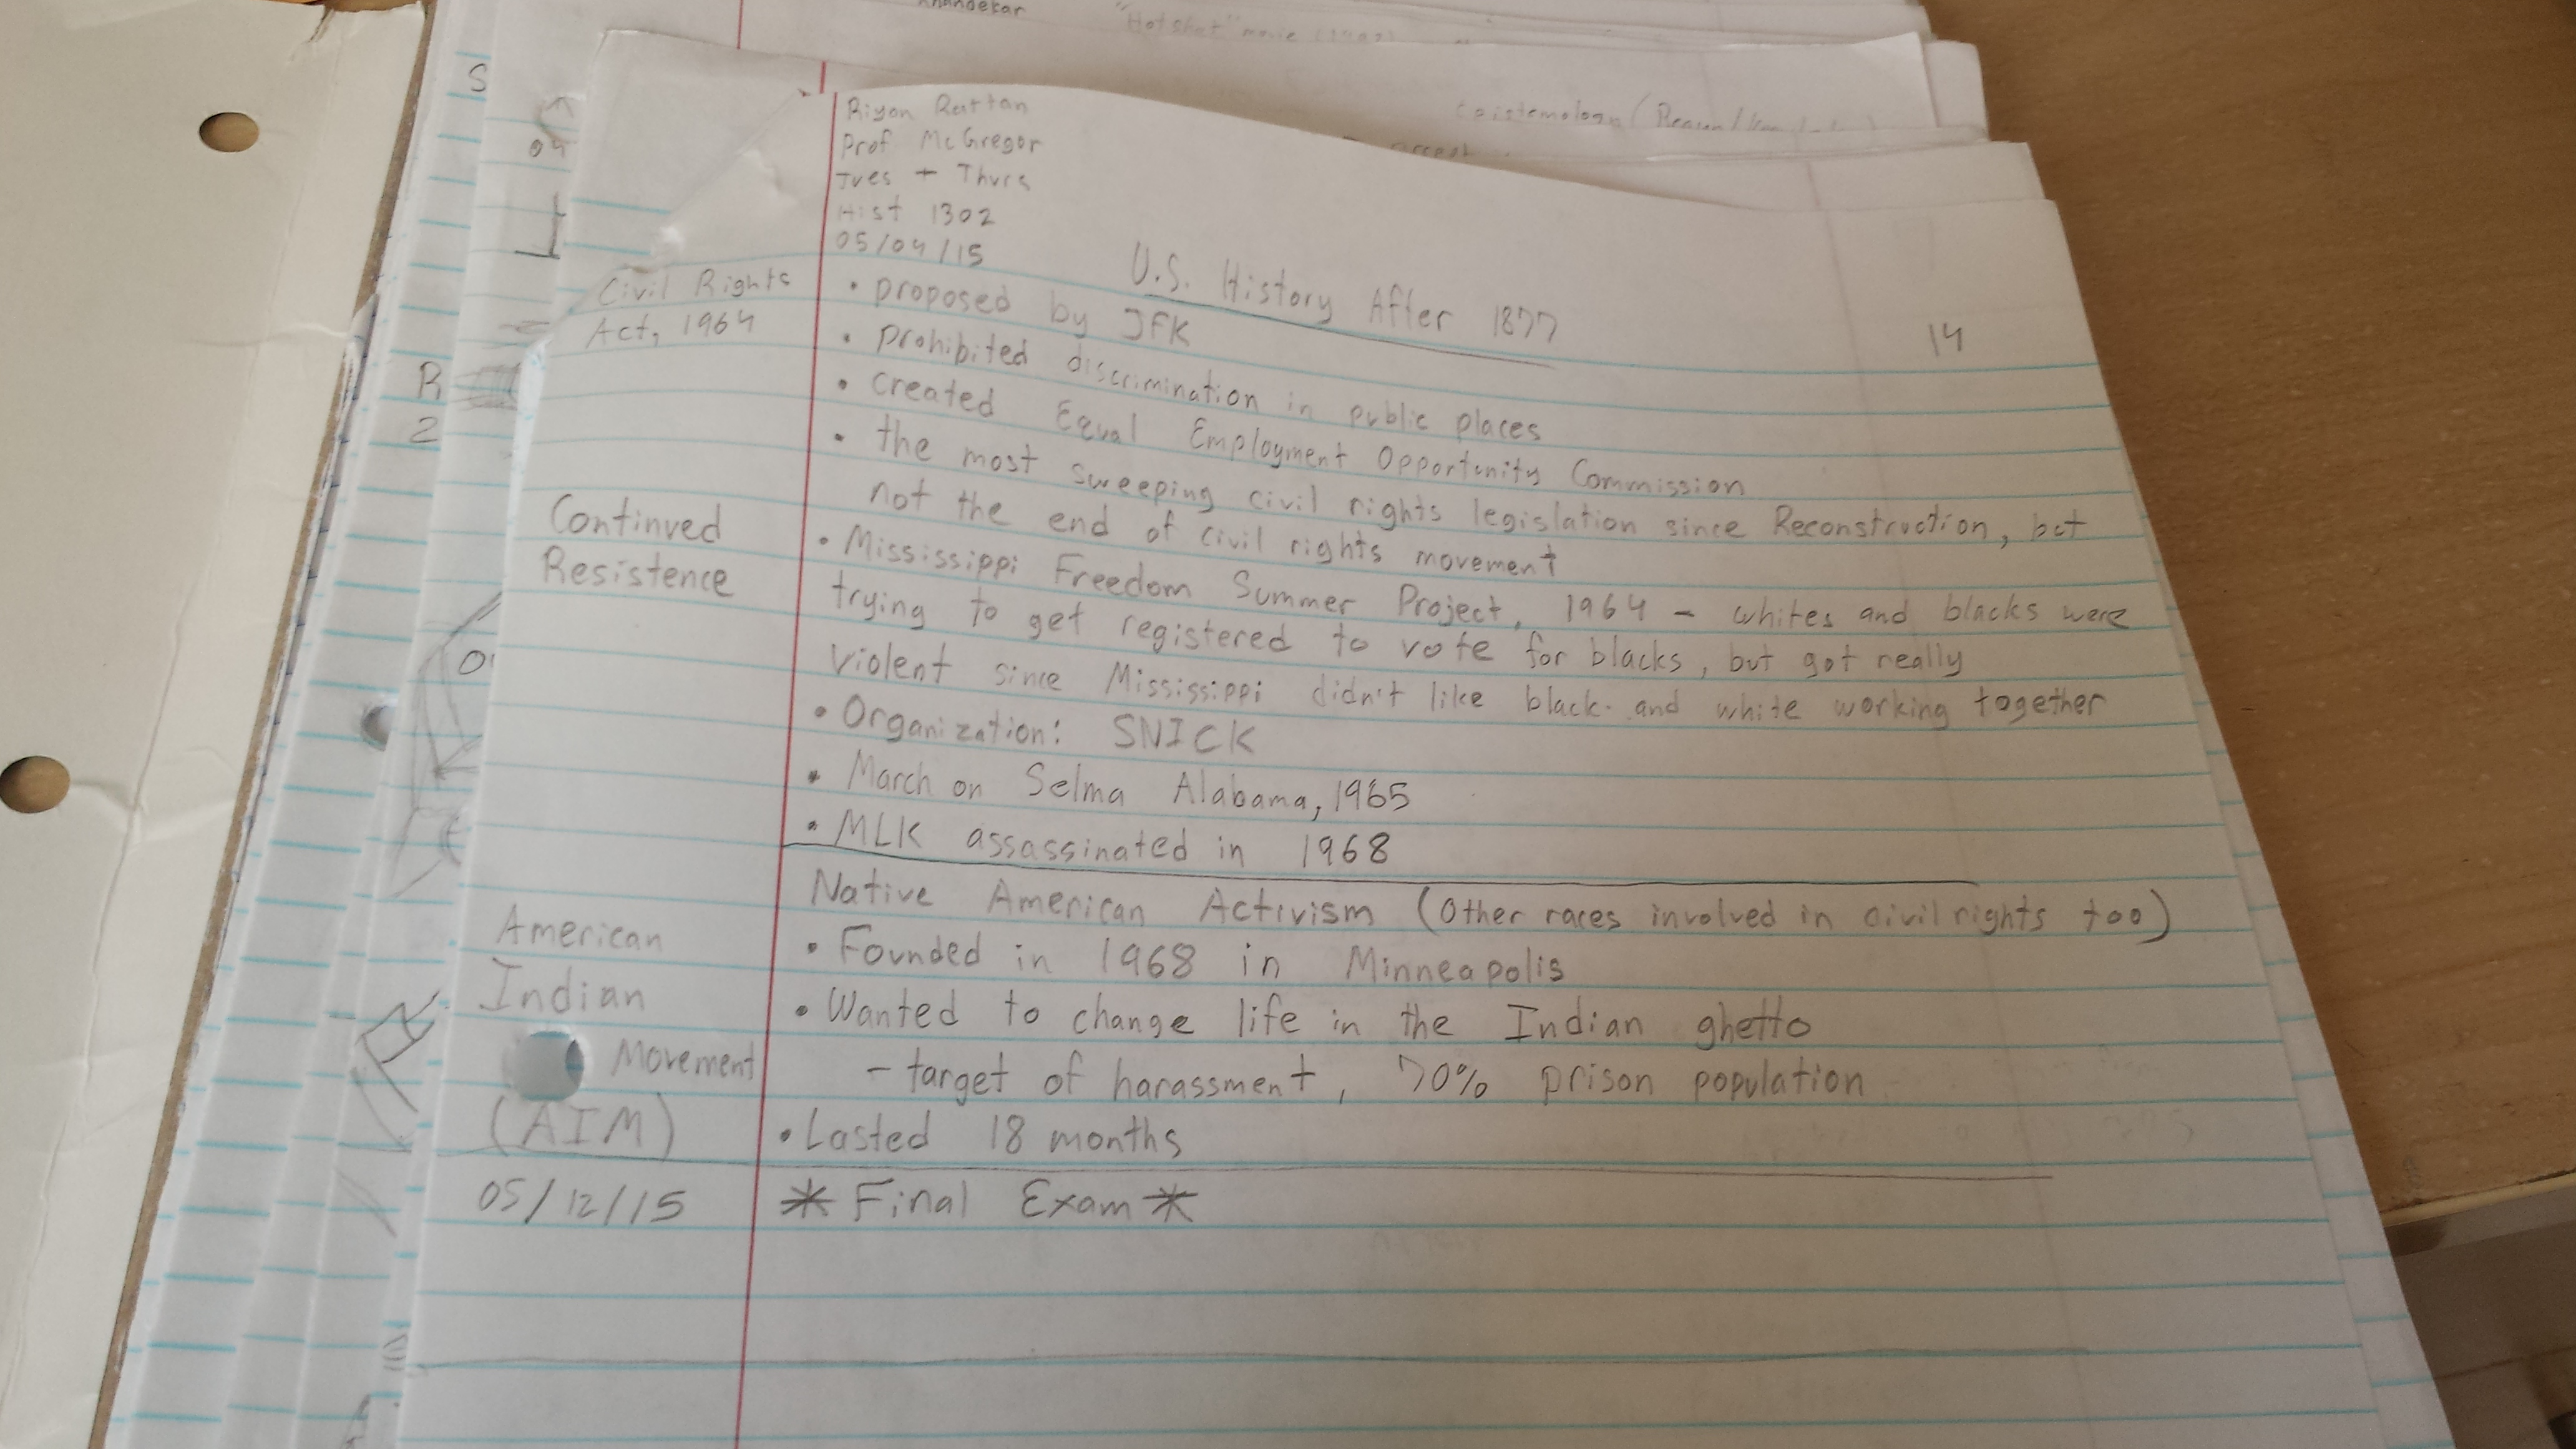 Khandekar
"Hot Shot" movie
Epistemology (Reason/
Riyon Rattan
Prof McGregor
Tues + Thurs
Hist 1302
05/04/15
U.S. History After 1877
14
Civil Rights
Act, 1964
• proposed by JFK
• prohibited discrimination in public places
• created Equal Employment Opportunity Commission
• the most sweeping civil rights legislation since Reconstruction, but
not the end of civil rights movement
Continued
Resistence
• Mississippi Freedom Summer Project, 1964 - whites and blacks were
trying to get registered to vote for blacks, but got really
violent since Mississippi didn't like black and white working together
• Organization: SNICK
• March on Selma Alabama, 1965
• MLK assassinated in 1968
Native American Activism (Other races involved in civil rights too)
American
Indian
Movement
(AIM)
• Founded in 1968 in Minneapolis
• Wanted to change life in the Indian ghetto
- target of harassment, 70% prison population
• Lasted 18 months
05/12/15
* Final Exam *